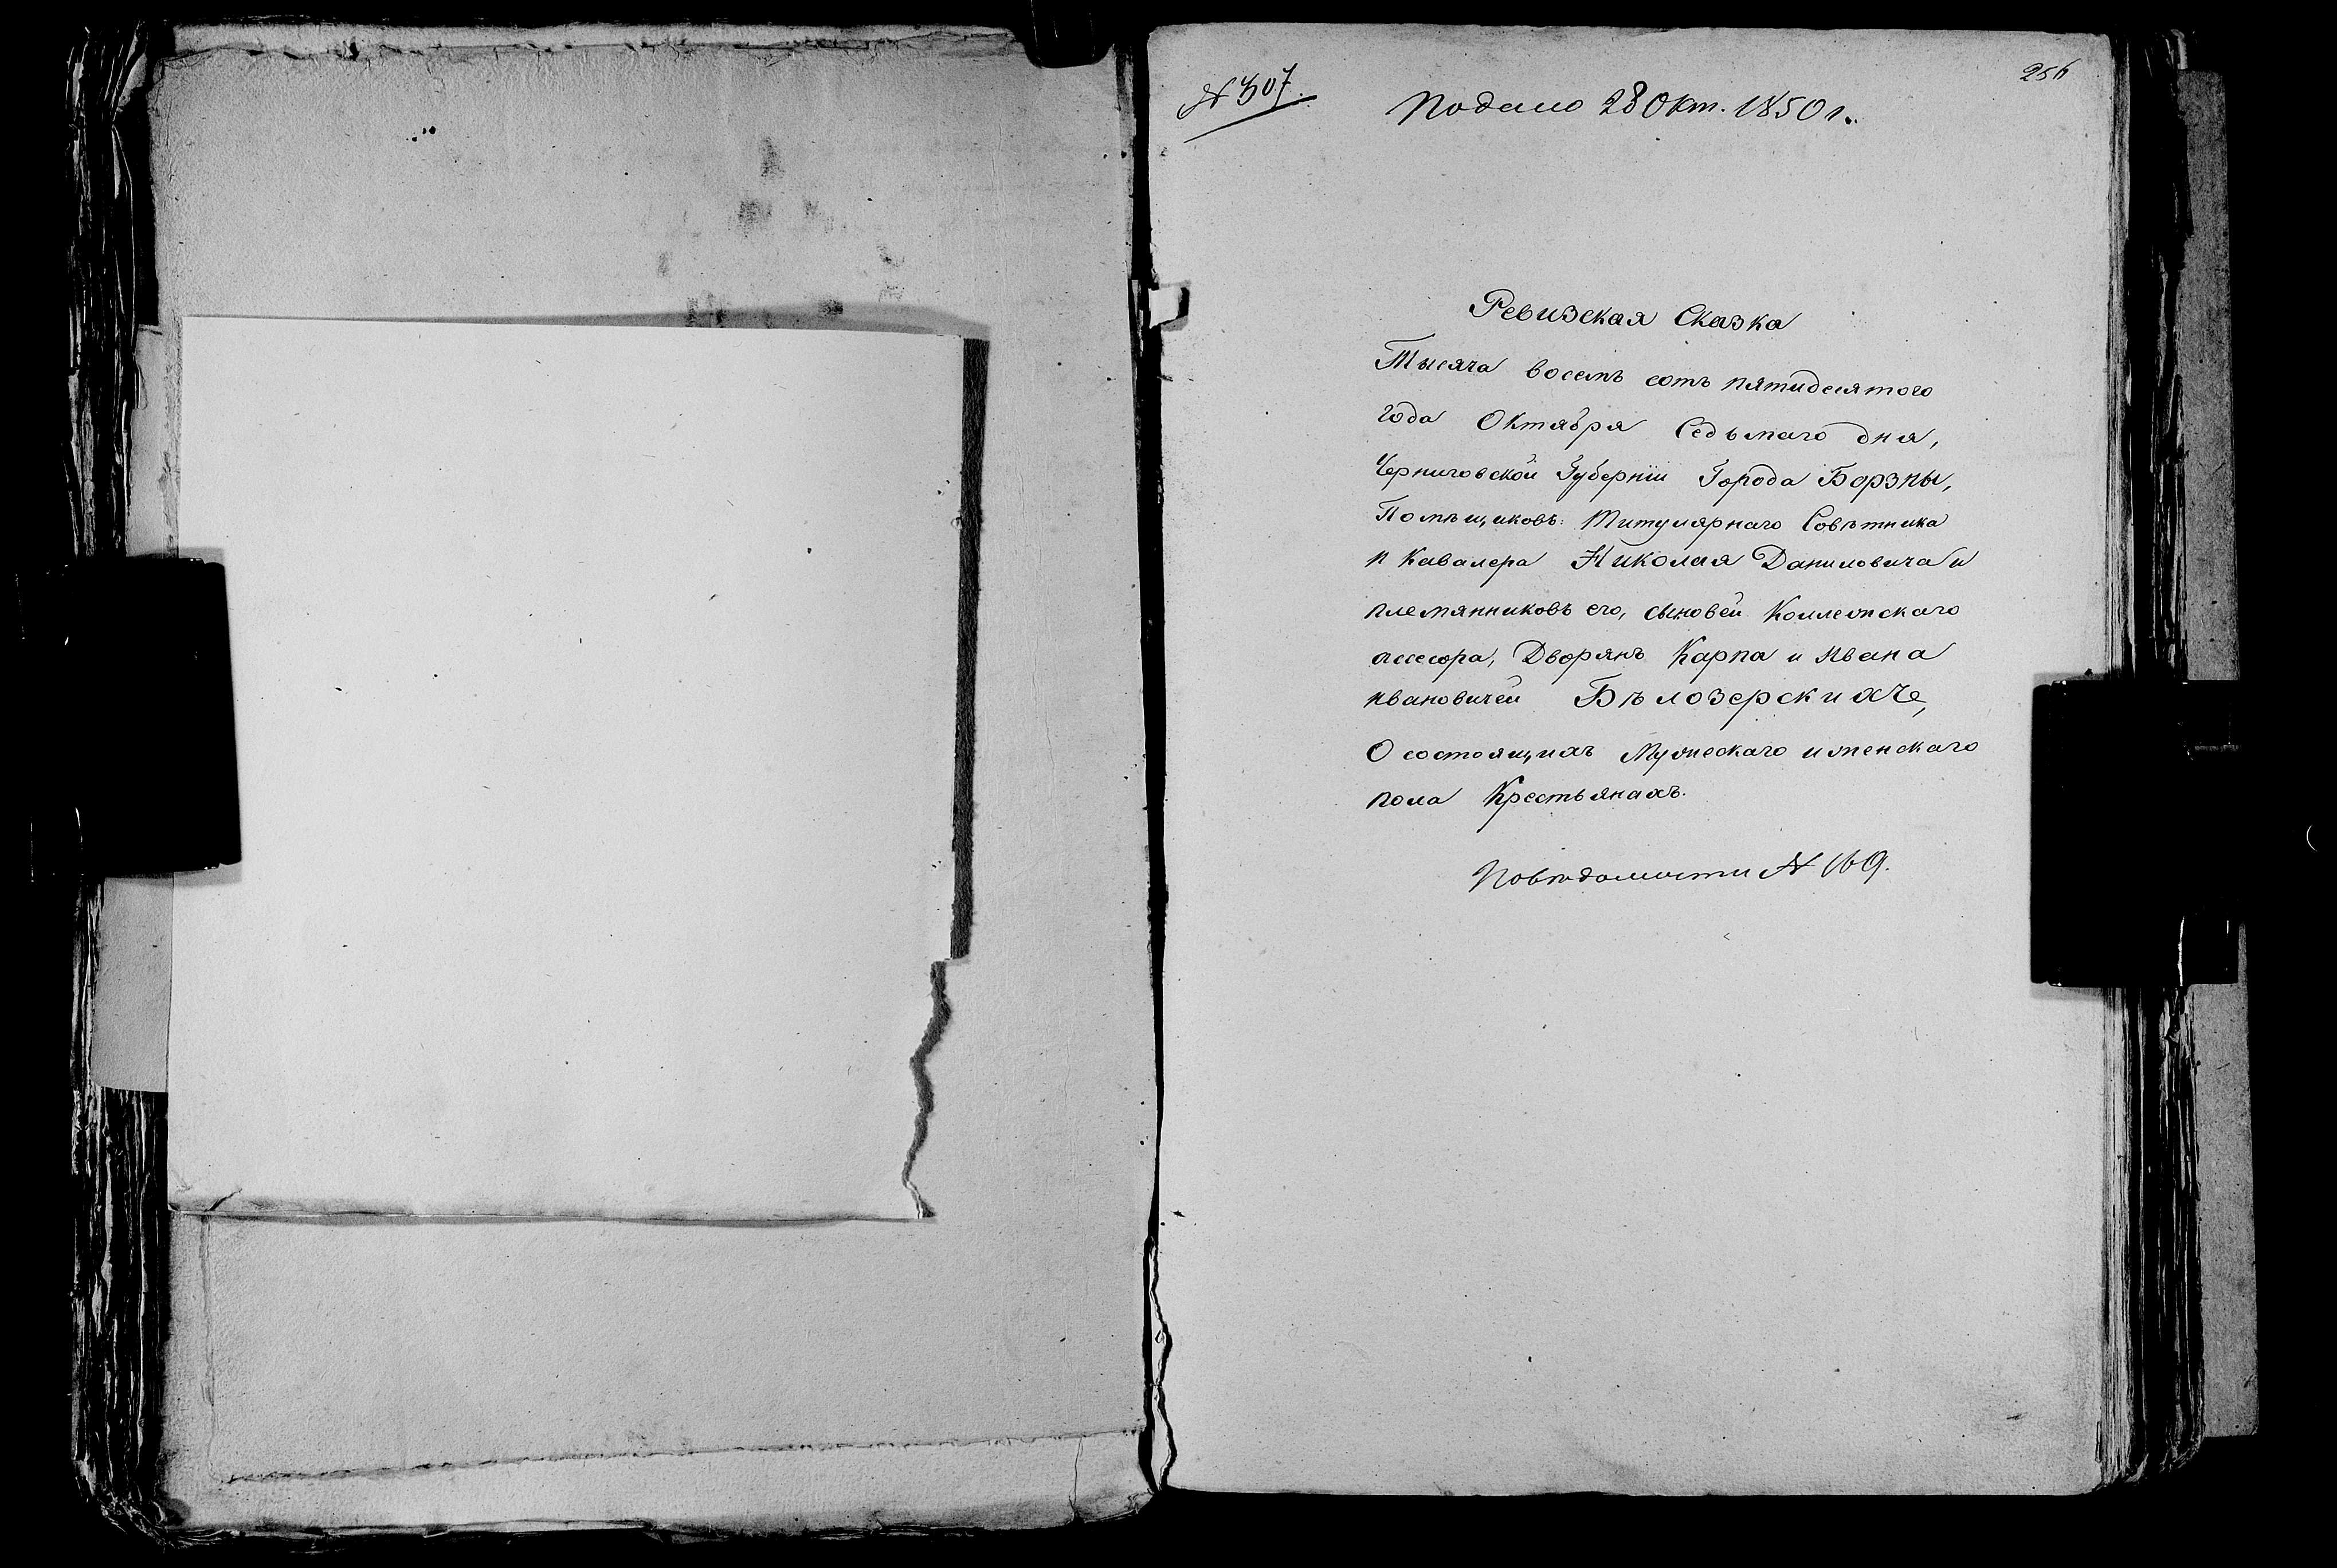 № 307.
Подано 28 Окт. 1850 г.
256
Ревизская Сказка
Тысяча восемь сотъ пятидесятого
года Октября Седьмаго дня,
Черниговской Губерніи Города Борзны,
Помѣщиковъ: Титулярнаго Совѣтника
и Кавалера Николая Даниловича и
племянниковъ его, сыновей Коллежскаго
ассесора, Дворянъ Карпа и Ивана
Ивановичей Бѣлозерскихъ,
О состоящихъ Мужескаго и женскаго
пола Крестьянахъ.
По вѣдомости № 169.